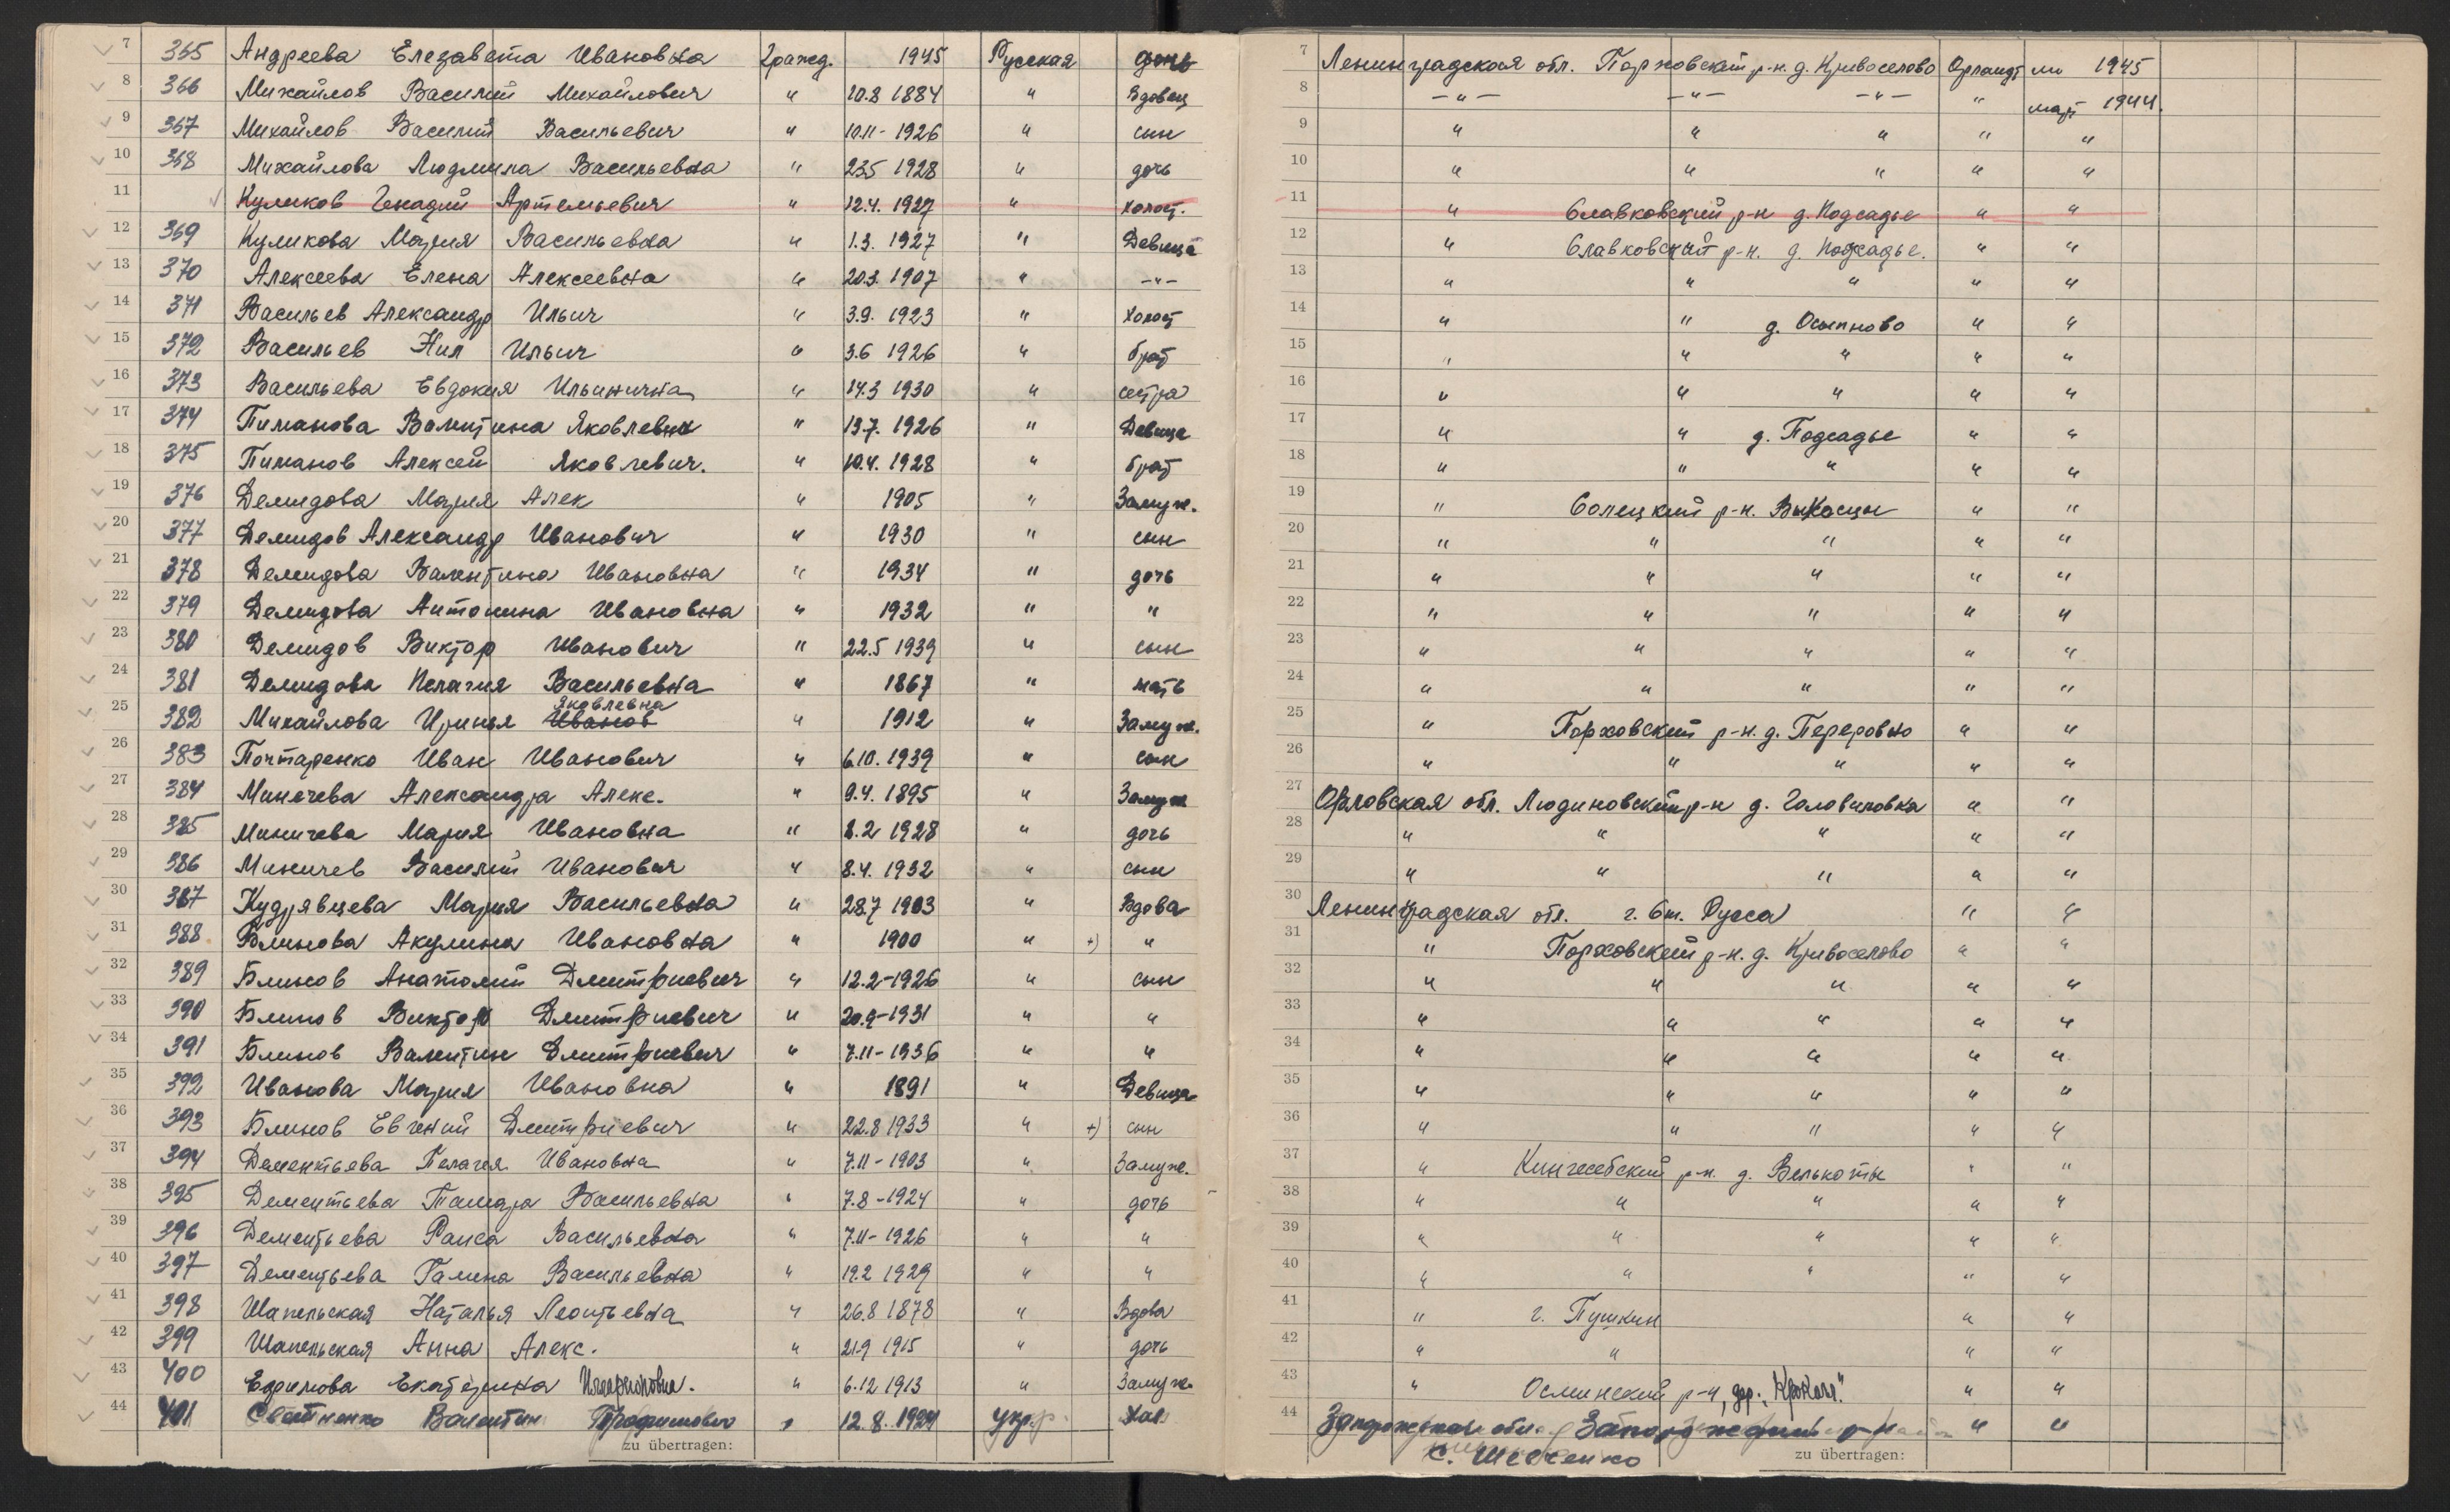 7 365 Андреева Елезавета Ивановна Гражд. 1945 Русская дочь
8 366 Михайлов Василий Михайлович " 20.8 1884 " Вдовец
9 367 Михайлов Василий Васильевич " 10.11-1926 " сын
10 368 Михайлова Людмила Васильевна " 23.5 1928 " дочь
11 Куликов Генадий Артемьевич " 12.4. 1927 " холост.
12 369 Куликова Мария Васильевна " 1.3. 1927 " Девица
13 370 Алексеева Елена Алексеевна " 20.3. 1907 " -"-
14 371 Васильев Александр Ильич " 3.9. 1923 " Холост
15 372 Васильев Нил Ильич " 3.6 1926 " брат
16 373 Васильева Евдокия Ильинична " 14.3 1930 " сестра
17 374 Пиманова Валентина Яковлевна " 13.7. 1926 " Девица
18 375 Пиманов Алексей Яковлевич. " 10.4. 1928 " брат
19 376 Демидова Мария Алек " 1905 " Замуж.
20 377 Демидов Александр Иванович " 1930 " сын
21 378 Демидова Валентина Ивановна " 1934 " дочь
22 379 Демидова Антонина Ивановна " 1932 " "
23 380 Демидов Виктор Иванович " 22.5 1939 " сын
24 381 Демидова Пелагия Васильевна " 1867 " мать
Яковлевна
25 382 Михайлова Иринья Иванов " 1912 " Замуж.
26 383 Почтаренко Иван Иванович " 6.10. 1939 " сын
27 384 Миничева Александра Алекс. " 9.4. 1895 " Замуж
28 385 Миничева Мария Ивановна " 8.2 1928 " дочь
29 386 Миничев Василий Иванович " 8.4. 1932 " сын
30 387 Кудрявцева Мария Васильевна " 28.7 1903 " Вдова
31 388. Блинова Акулина Ивановна " 1900 " +) "
32 389 Блинов Анатолий Дмитриевич " 12.2-1926 " сын
33 390 Блинов Виктор Дмитриевич " 20.9-1931 " "
34 391 Блинов Валентин Дмитриевич " 7.11-1936 " "
35 392 Иванова Мария Ивановна " 1891 " Девица
36 393 Блинов Евгений Дмитриевич " 22.8 1933 " +) сын
37 394 Дементьева Пелагея Ивановна " 7.11-1903 " Замуж.
38 395 Дементьева Тамара Васильевна " 7.8-1924 " дочь
39 396 Дементьева Раиса Васильевна " 7.11-1926 " "
40 397 Дементьева Галина Васильевна " 19.2 1929 " "
41 398 Шапельская Наталья Леонтьевна " 26.8 1878 " Вдова
42 399 Шапельская Анна Алекс. " 21.9 1915 " дочь
43 400 Ефимова Екатерина Илларионовна. " 6.12 1913 " Замуж.
44 401 Валентин Трофимович " 12.8.1924 укр. Хол
zu übertragen:
7 Ленинградская обл. Порховский р-н. д. Кривоселово 1945
8 -"- -"- -"- " март 1944.
9 " " " " "
10 " " " " "
11 " Славковский р-н д. Подсадье " "
12 " Славковский р-н. д. Подсадье. " "
13 " " " " "
14 " " д. Осыпново " "
15 " " " " "
16 " " " " "
17 " " д. Подсадье " "
18 " " " " "
19 " Солецкий р-н. " "
20 " " " " "
21 " " " " "
22 " " " " "
23 " " " " "
24 " " " " "
25 " Порховский р-н. д. Переровно " "
26 " " " " "
27 Орловская обл. Людиновский р-н д. Головиловка " "
28 " " " " "
29 " " " " "
30 Ленинградская обл. г. Ст. Русса " "
31 " Порховский р-н. д. Кривоселово " "
32 " " " " "
33 " " " " "
34 " " " " "
35 " " " " "
36 " " " " "
37 " Кингесебский р-н. д. Велькоты " "
38 " " " " "
39 " " " " "
40 " " " " "
41 " г. Пушкин " "
42 " " " "
43 " Осминский р-н, дер. " "
44 Запорожская обл. " "
с. Шевченко
zu übertragen: